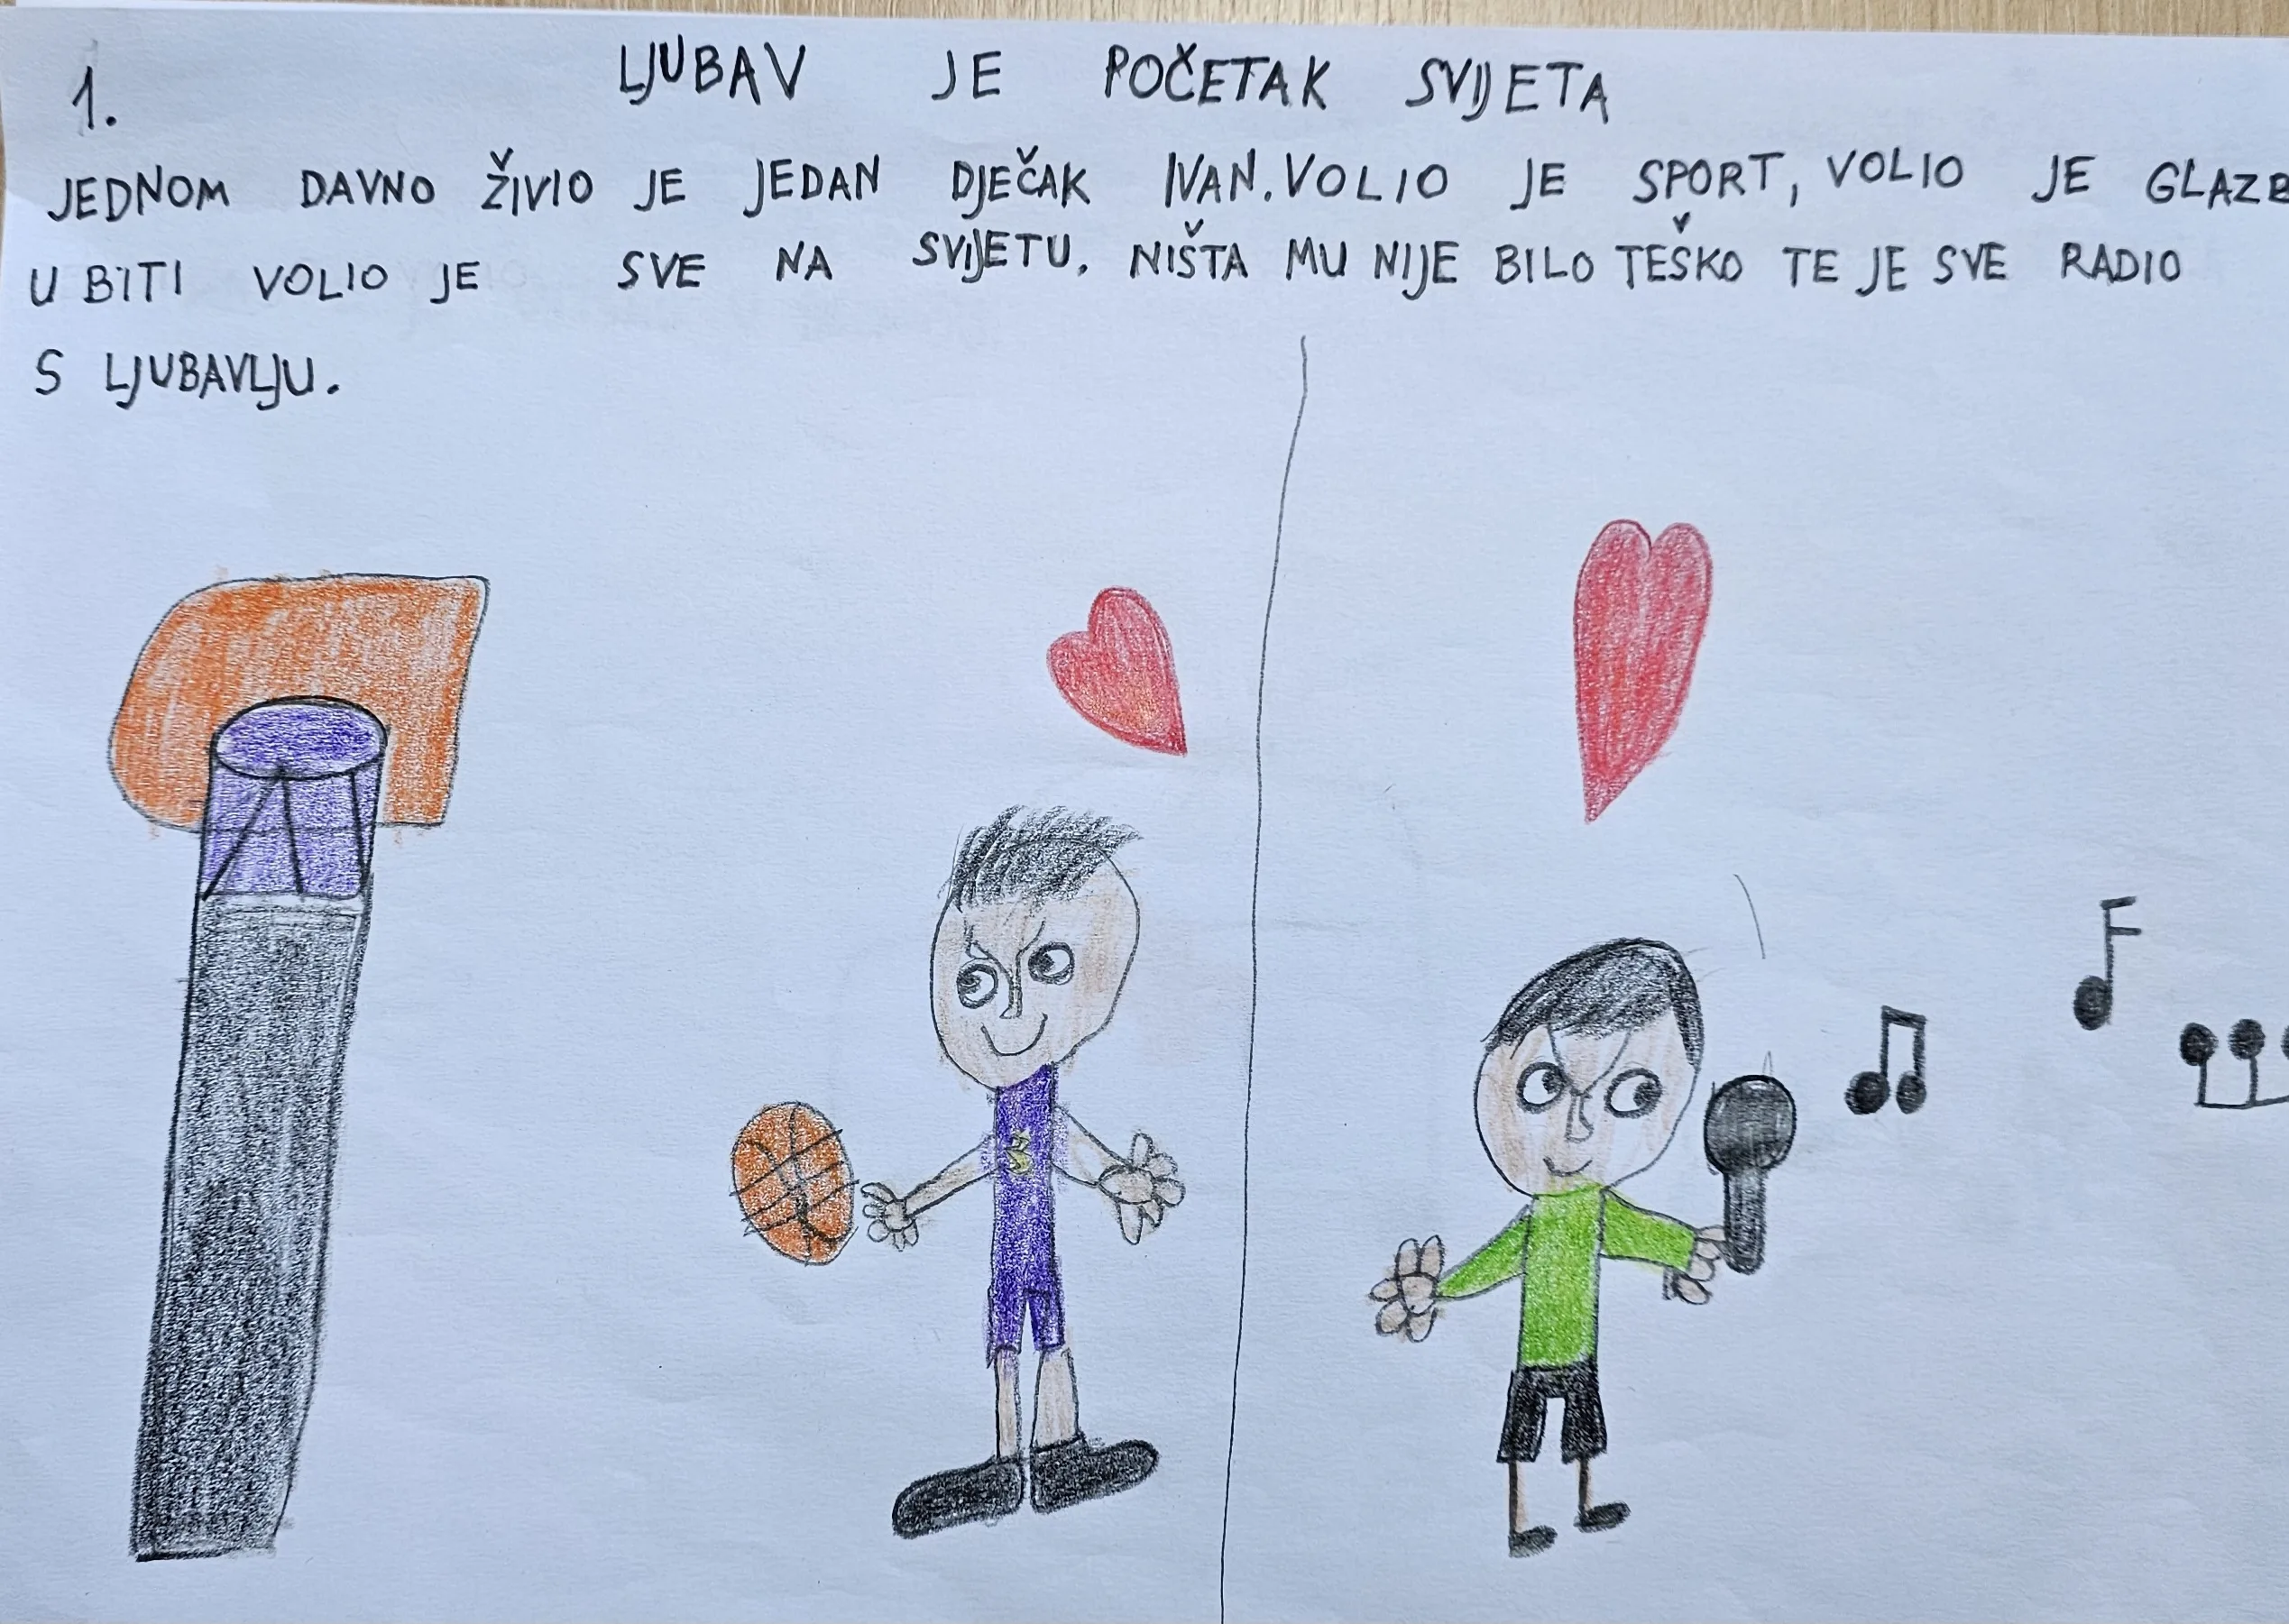 1. LJUBAV JE POČETAK SVIJETA
JEDNOM DAVNO ŽIVIO JE JEDAN DJEČAK IVAN. VOLIO JE SPORT, VOLIO JE GLAZB
U BITI VOLIO JE SVE NA SVIJETU. NIŠTA MU NIJE BILO TEŠKO TE JE SVE RADIO
S LJUBAVLJU.